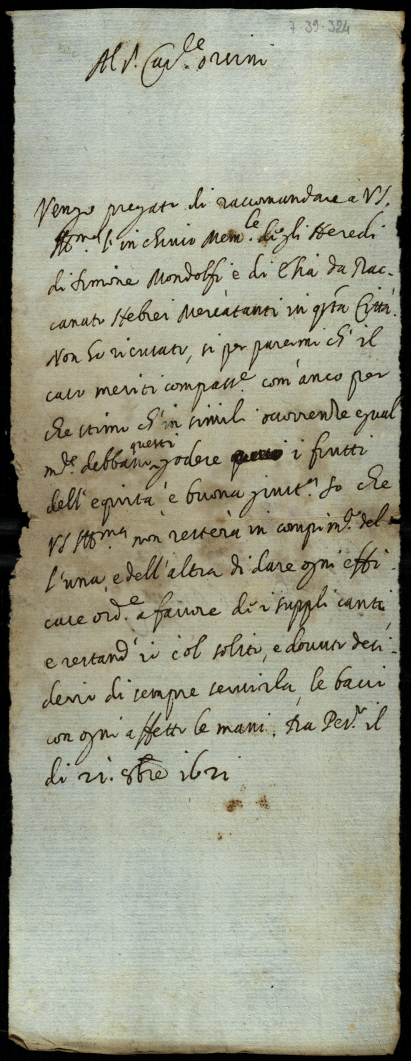 7-39-324
Al S.r Car.le Orsini
Vengo pregato di raccomandare a VS.
Ill.ma l'inchiuso Mem.le degli Heredi
di Simone Mondolfi e di Elia da Rac-
canati Hebrei Mercatanti in q.sta Città.
Non hò ricusato, sì per parermi ch' il
caso meriti compass.e com' anco per
che stimo ch' in simili occorrenze egual
m.te debbano questi godere i frutti
dell'equità e buona giust.a So che
VS Ill.ma non resterà in compim.to del
l'una, e dell'altra di dare ogni effi-
cace ord.e a favore di i supplicanti,
e restand' io col solito, e dovuto desi-
derio di sempre servirla, le bacio
con ogni affetto le mani. Da Pes.o il
di 21. 8bre 1621